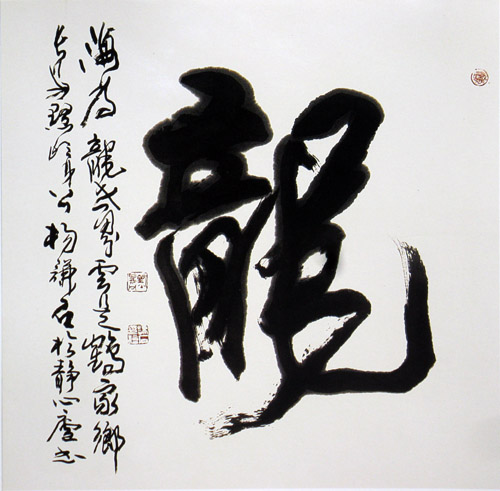 龍
海為龍世界雲是鶴家鄉
楊謙於靜心廬書